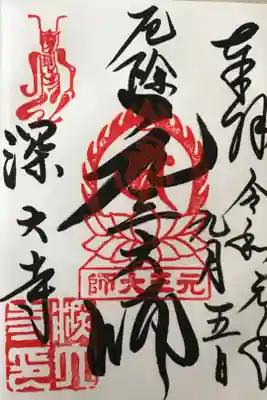 奉拝 令和元年
九月五日
厄除 元三大師
元三大師
深大寺